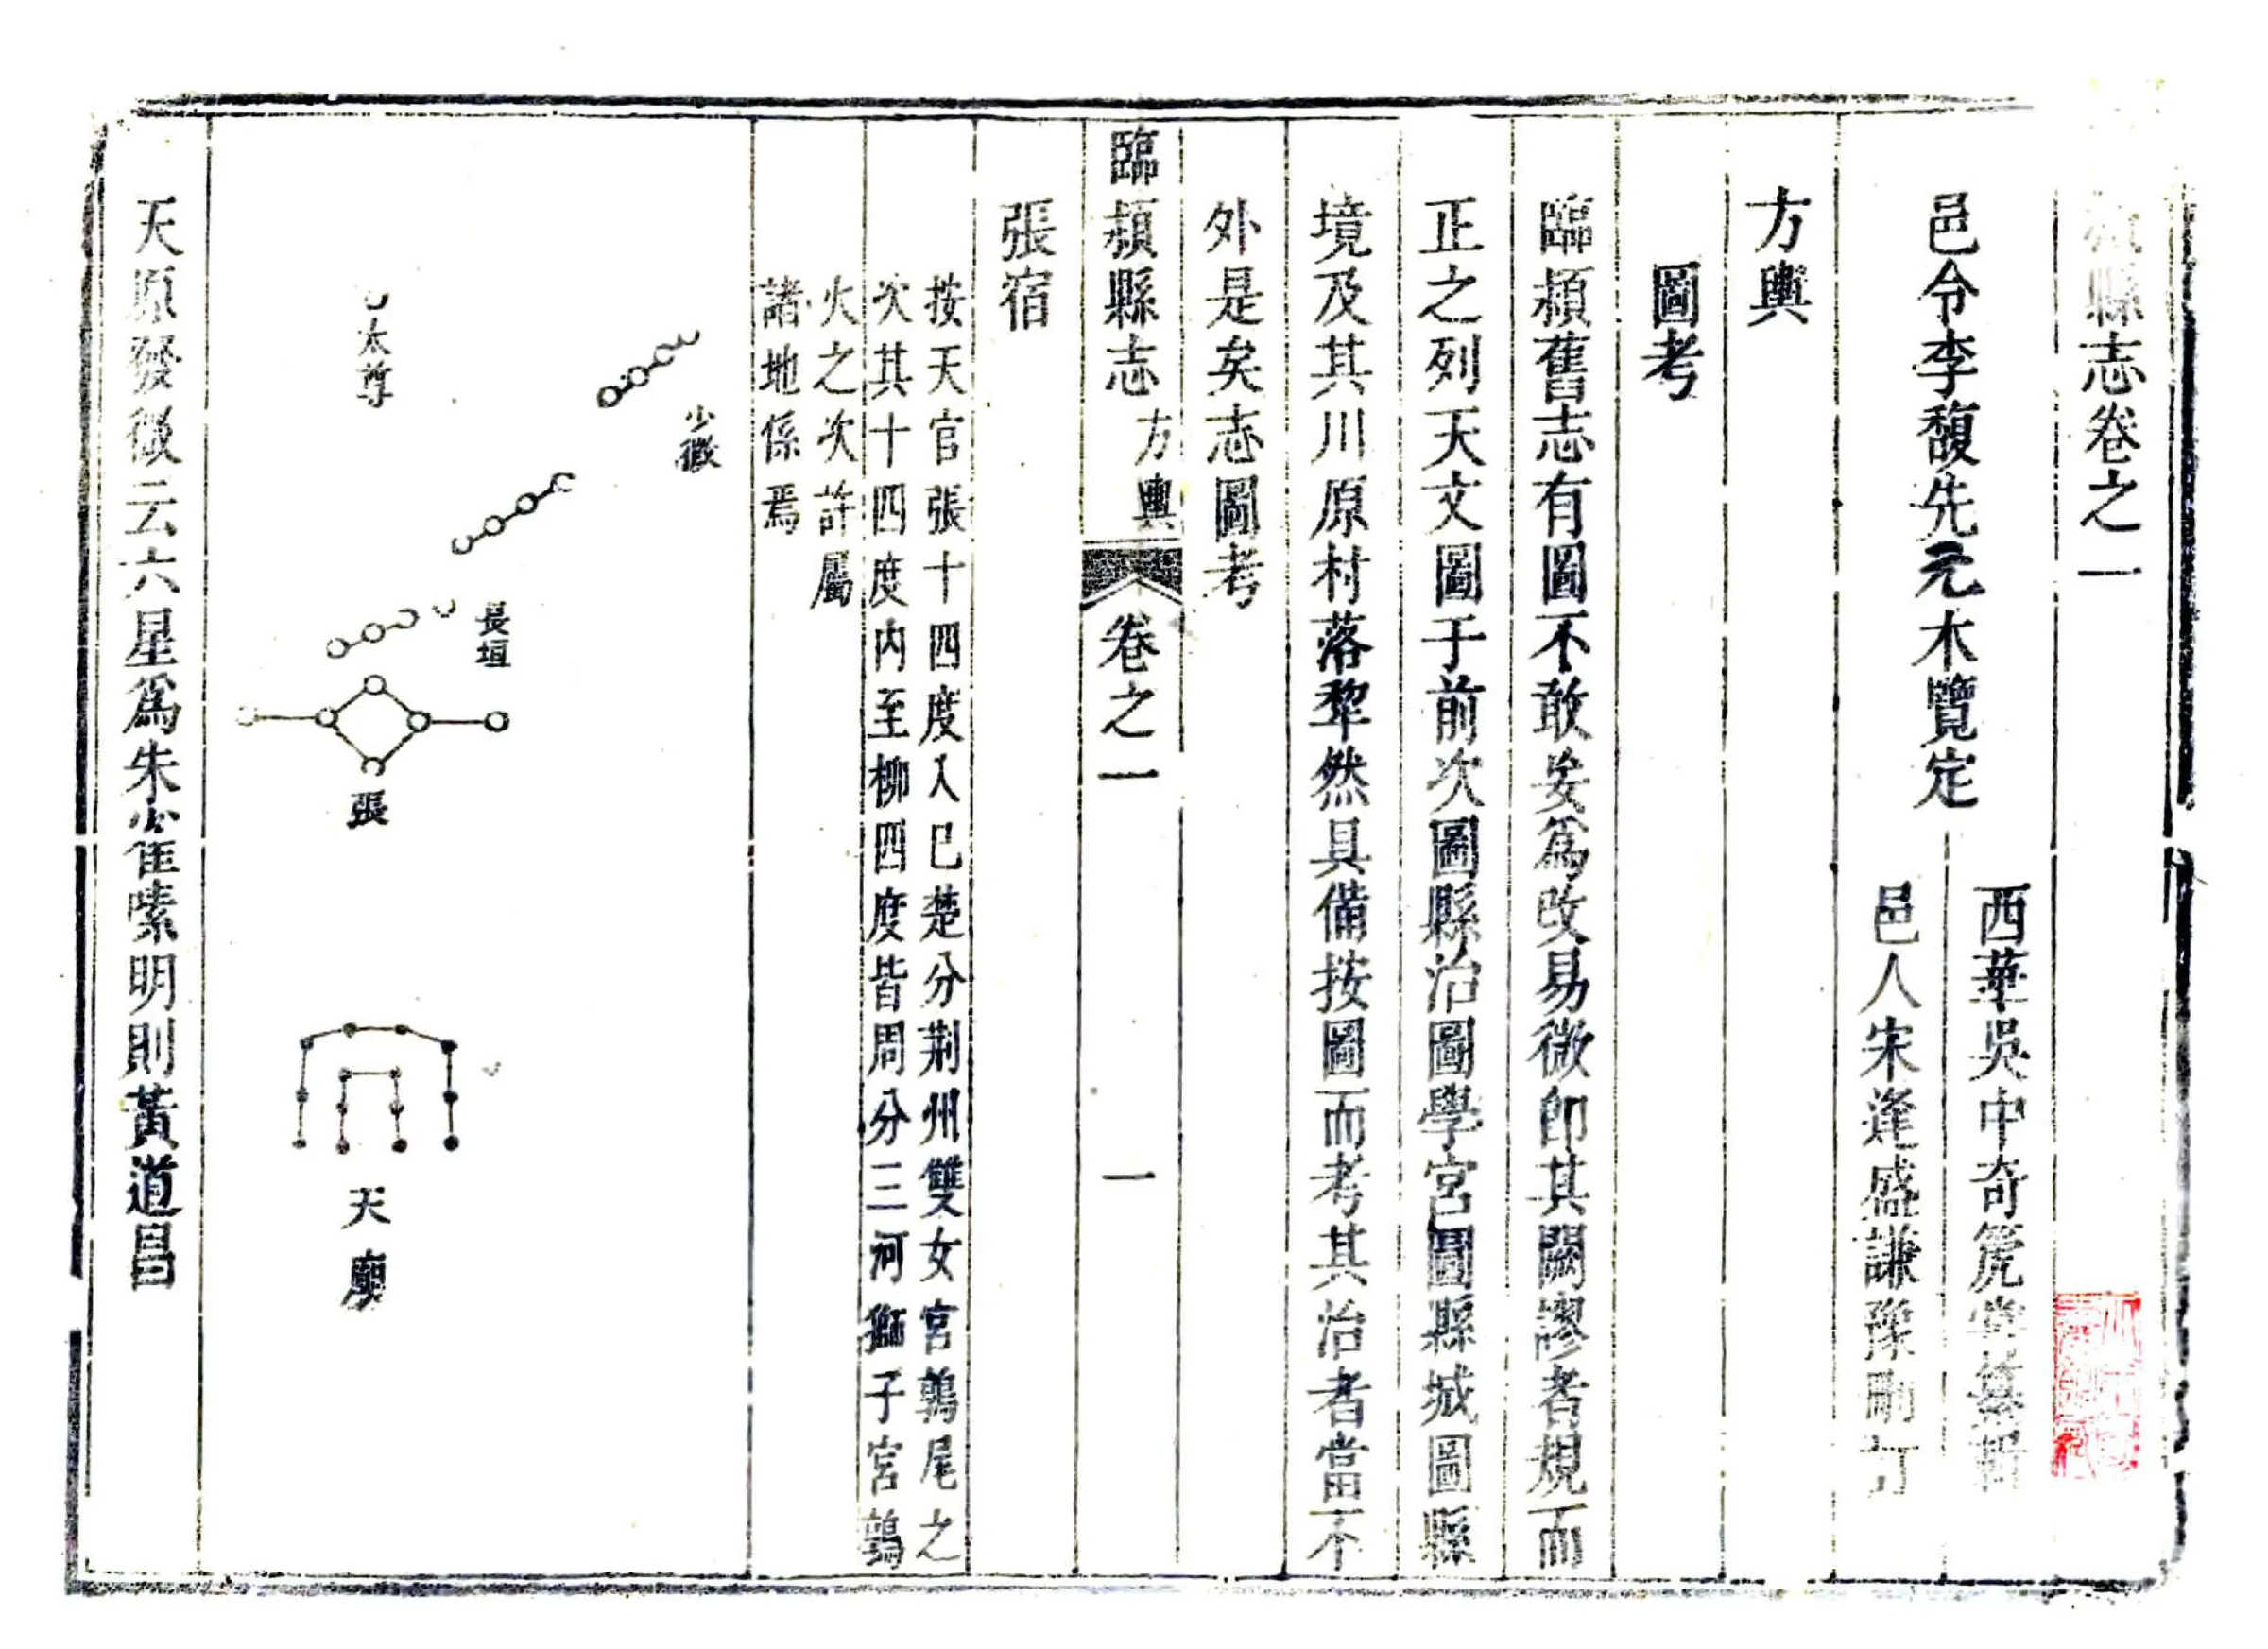 縣志卷之一
邑令李馥先元木覽定
西華吳中奇箎堂纂輯
邑人宋逢盛謙豫刪訂
方輿
圖考
臨潁舊志有圖不敢妄爲改易微卽其闕謬者規而
正之列天文圖于前次圖縣治圖學宮圖縣城圖縣
境及其川原村落犂然具備按圖而考其治者當不
外是矣志圖考
臨潁縣志 方輿 卷之一 一
張宿
按天官張十四度入巳楚分荆州雙女宮鶉尾之
次其十四度内至柳四度皆周分三河獅子宮鶉
火之次許屬
諸地係焉
少微
太尊
長垣
張
天廟
天原發微云六星爲朱雀嗉明則黃道昌